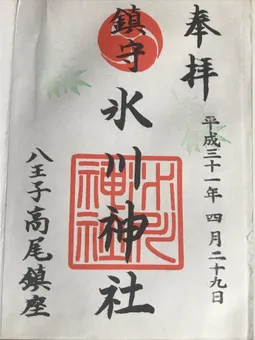 奉拝
平成三十一年 四月二十九日
鎮守 氷川神社
八王子高尾鎮座
氷川
神社